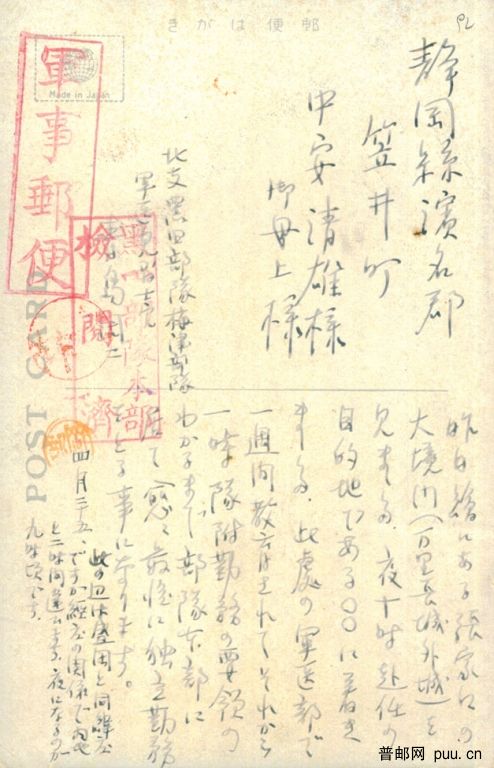 郵便はがき
Made in Japan
軍事郵便
検閲
済
POST CARD
静岡縣濱名郡
笠井町
中安清雄様
御母上様
北支黒田部隊梅津部隊
昨日繪にある張家口の
大境門(万里長城外城)を
見ました。夜十時赴任の
目的地である〇〇に着き
ました。此處の軍医部で
一週間教育されてそれから
一時隊附勤務の要領の
わかるまで部隊本部に
居て愈々最後に独立勤務
をとる事になります。
四月二十五、
此の辺は盛岡と同緯度
ですが経度の関係で内地
と二時間違ひます。夜になるのが
九時頃です。
普邮网 puu.cn